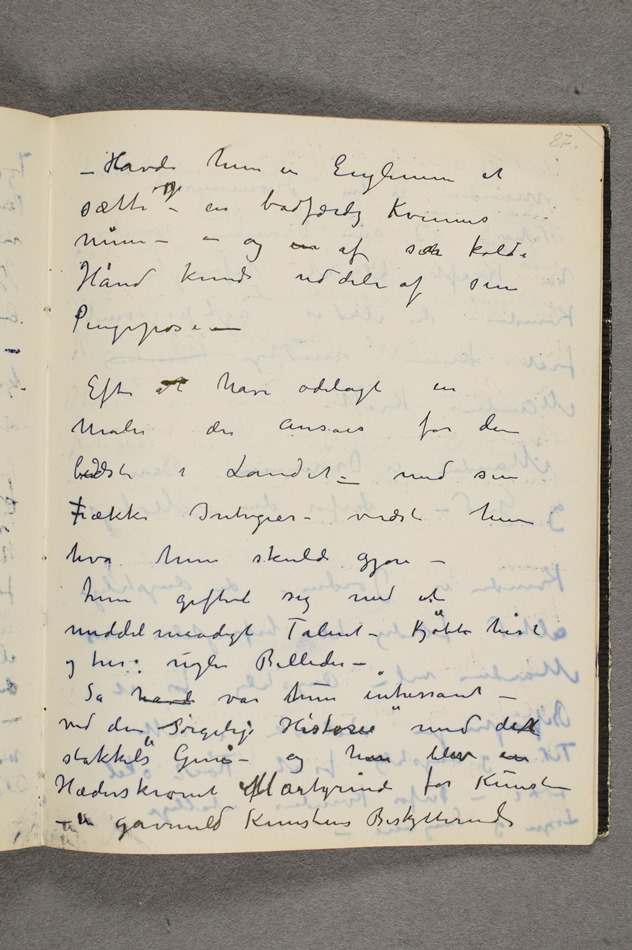 87.
– Havde hun en Englemine at
sætte op – en bodfærdig Kvindes
mine – – og en af sæ kolde
Hånd kunde uddele af sin
Pengepose –
Efter at have ødelagt en
Maler der ansaes for den
bedste i Landet – med sine
Frække Intriger – vidste hun
hva hun skulde gjøre –
hun giftet sig med et
middelmaadigt Talent – Kjøbte hist
og her nogle Billeder –
Så havd var hun interessant –
ved den "Sørgelige Historie" med det
stakkels Geni – og han blev en
Hæderskronet Martyrinde for Kunsten
– en gavmild Kunstens Beskytterinde